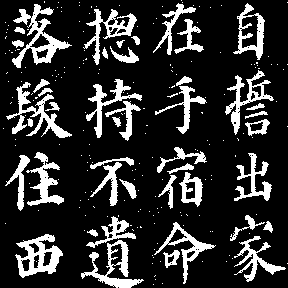 自誓出家
在手宿命
摠持不遺
落髮住西